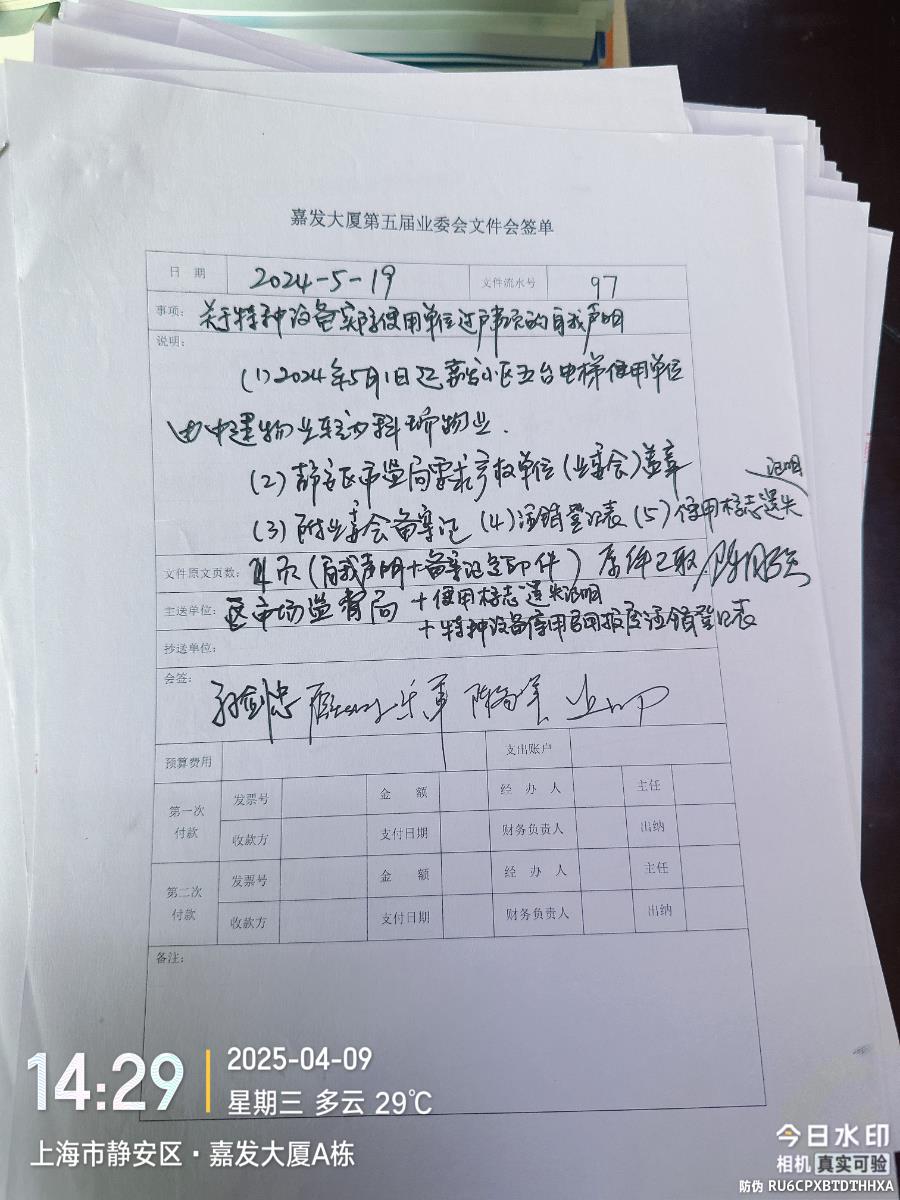 嘉发大厦第五届业委会文件会签单
日 期 2024-5-19 文件流水号 97
事项: 关于特种设备实际使用单位过户事项的自我声明
说明:
(1) 2024年5月1日起嘉发小区五台电梯使用单位
由中建物业转为科瑞物业.
(2) 静安区市监局要求产权单位(业委会)盖章
证明
(3) 附业委会备案记 (4) 注销登记表 (5) 使用标志遗失
文件原文页数: 页(自我声明+备案记复印件) 原件已取
主送单位: 区市场监督局 +使用标志遗失证明
+特种设备停用启用报废注销登记表
抄送单位:
会签:
预算费用 支出账户
第一次付款 发票号 金 额 经 办 人 主任
收款方 支付日期 财务负责人 出纳
第二次付款 发票号 金 额 经 办 人 主任
收款方 支付日期 财务负责人 出纳
备注:
14:29 2025-04-09
星期三 多云 29℃
上海市静安区·嘉发大厦A栋
今日水印
相机 真实可验
防伪 RU6CPXBTDTHHXA